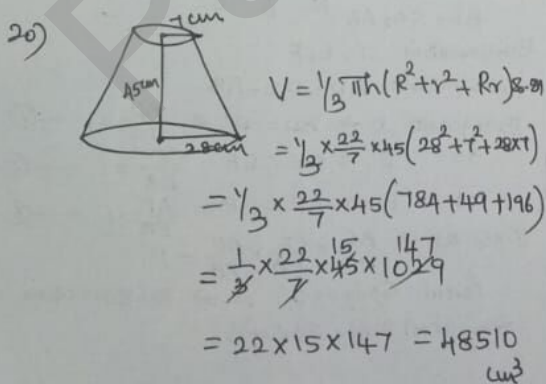 20)
7cm
45cm
28cm
V = 1/3 πh(R² + r² + Rr) s.an
= 1/3 × 22/7 × 45(28² + 7² + 28×7)
= 1/3 × 22/7 × 45(784 + 49 + 196)
= 1/3 × 22/7 × 45 × 1029
15 147
= 22 × 15 × 147 = 48510
cm³